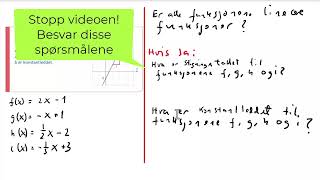 Stopp videoen!
Besvar disse
spørsmålene
er konstantleddet.
f(x) = 2x - 1
g(x) = -x + 1
h(x) = 1/2 x - 2
i(x) = -1/3 x + 3
Er alle funksjonene lineære
funksjoner?
Hvis ja:
Hva er stigningstallet til
funksjonene f, g, h og i?
Hva er konstantleddet til
funksjonene f, g, h og i?